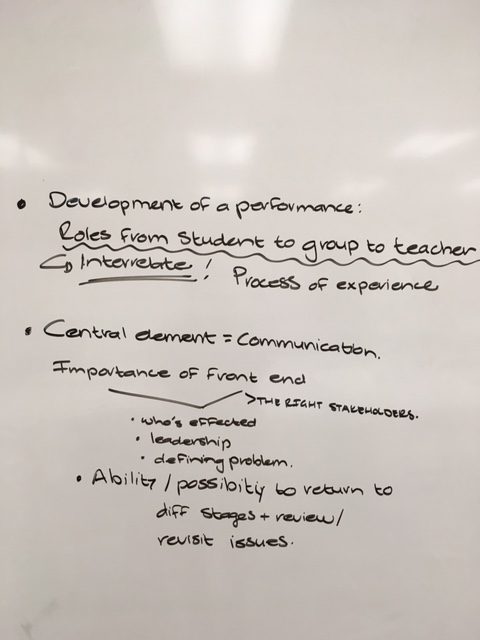 • Development of a performance:
Roles from student to group to teacher
↳ Interrelate! Process of experience
• Central element = Communication.
Importance of front end
> THE RIGHT STAKEHOLDERS.
• who's effected
• leadership
• defining problem.
• Ability / possibity to return to
diff stages + review/
revisit issues.